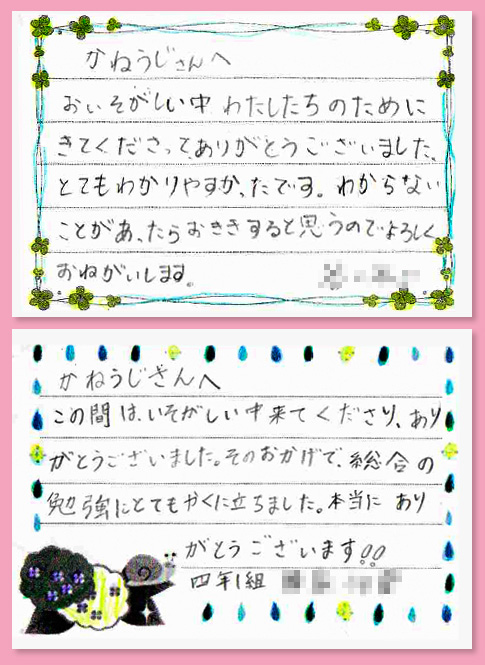 かねうじさんへ
おいそがしい中わたしたちのために
きてくださってありがとうございました、
とてもわかりやすかったです。わからない
ことがあったらおききすると思うのでよろしく
おねがいします。
かねうじさんへ
この間は、いそがしい中来てくださり、あり
がとうございました。そのおかげで、総合の
勉強にとてもやくに立ちました。本当に あり
がとうございます!!
四年1組